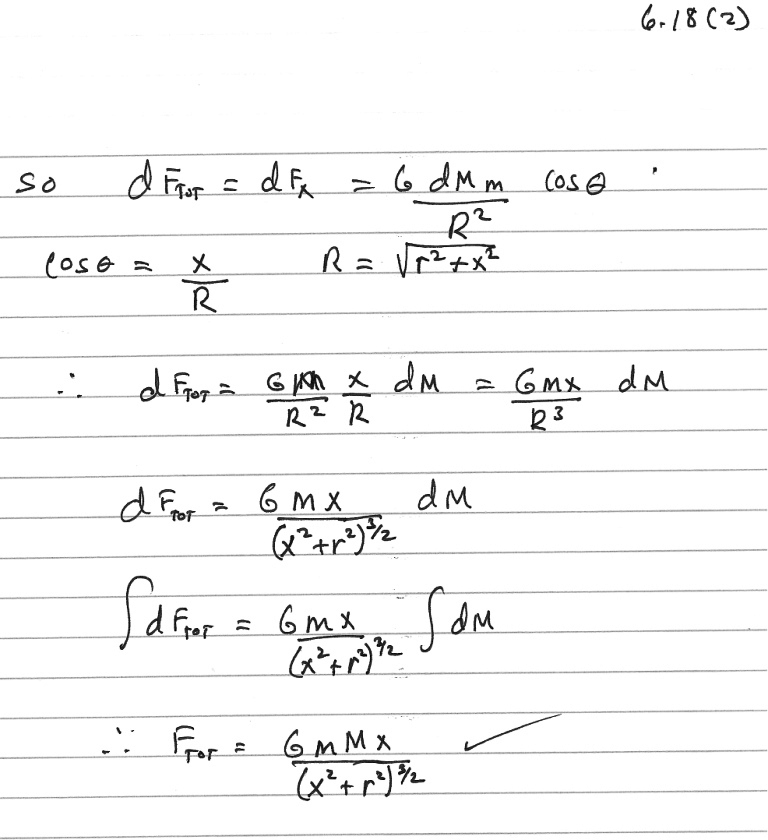 6.18(2)
so dF_TOT = dF_x = G dM m / R² cos θ
cos θ = x / R R = √(r² + x²)
∴ dF_TOT = G m / R² x / R dM = G m x / R³ dM
dF_TOT = G m x / (x² + r²)^(3/2) dM
∫ dF_TOT = G m x / (x² + r²)^(3/2) ∫ dM
∴ F_TOT = G m M x / (x² + r²)^(3/2) ✓